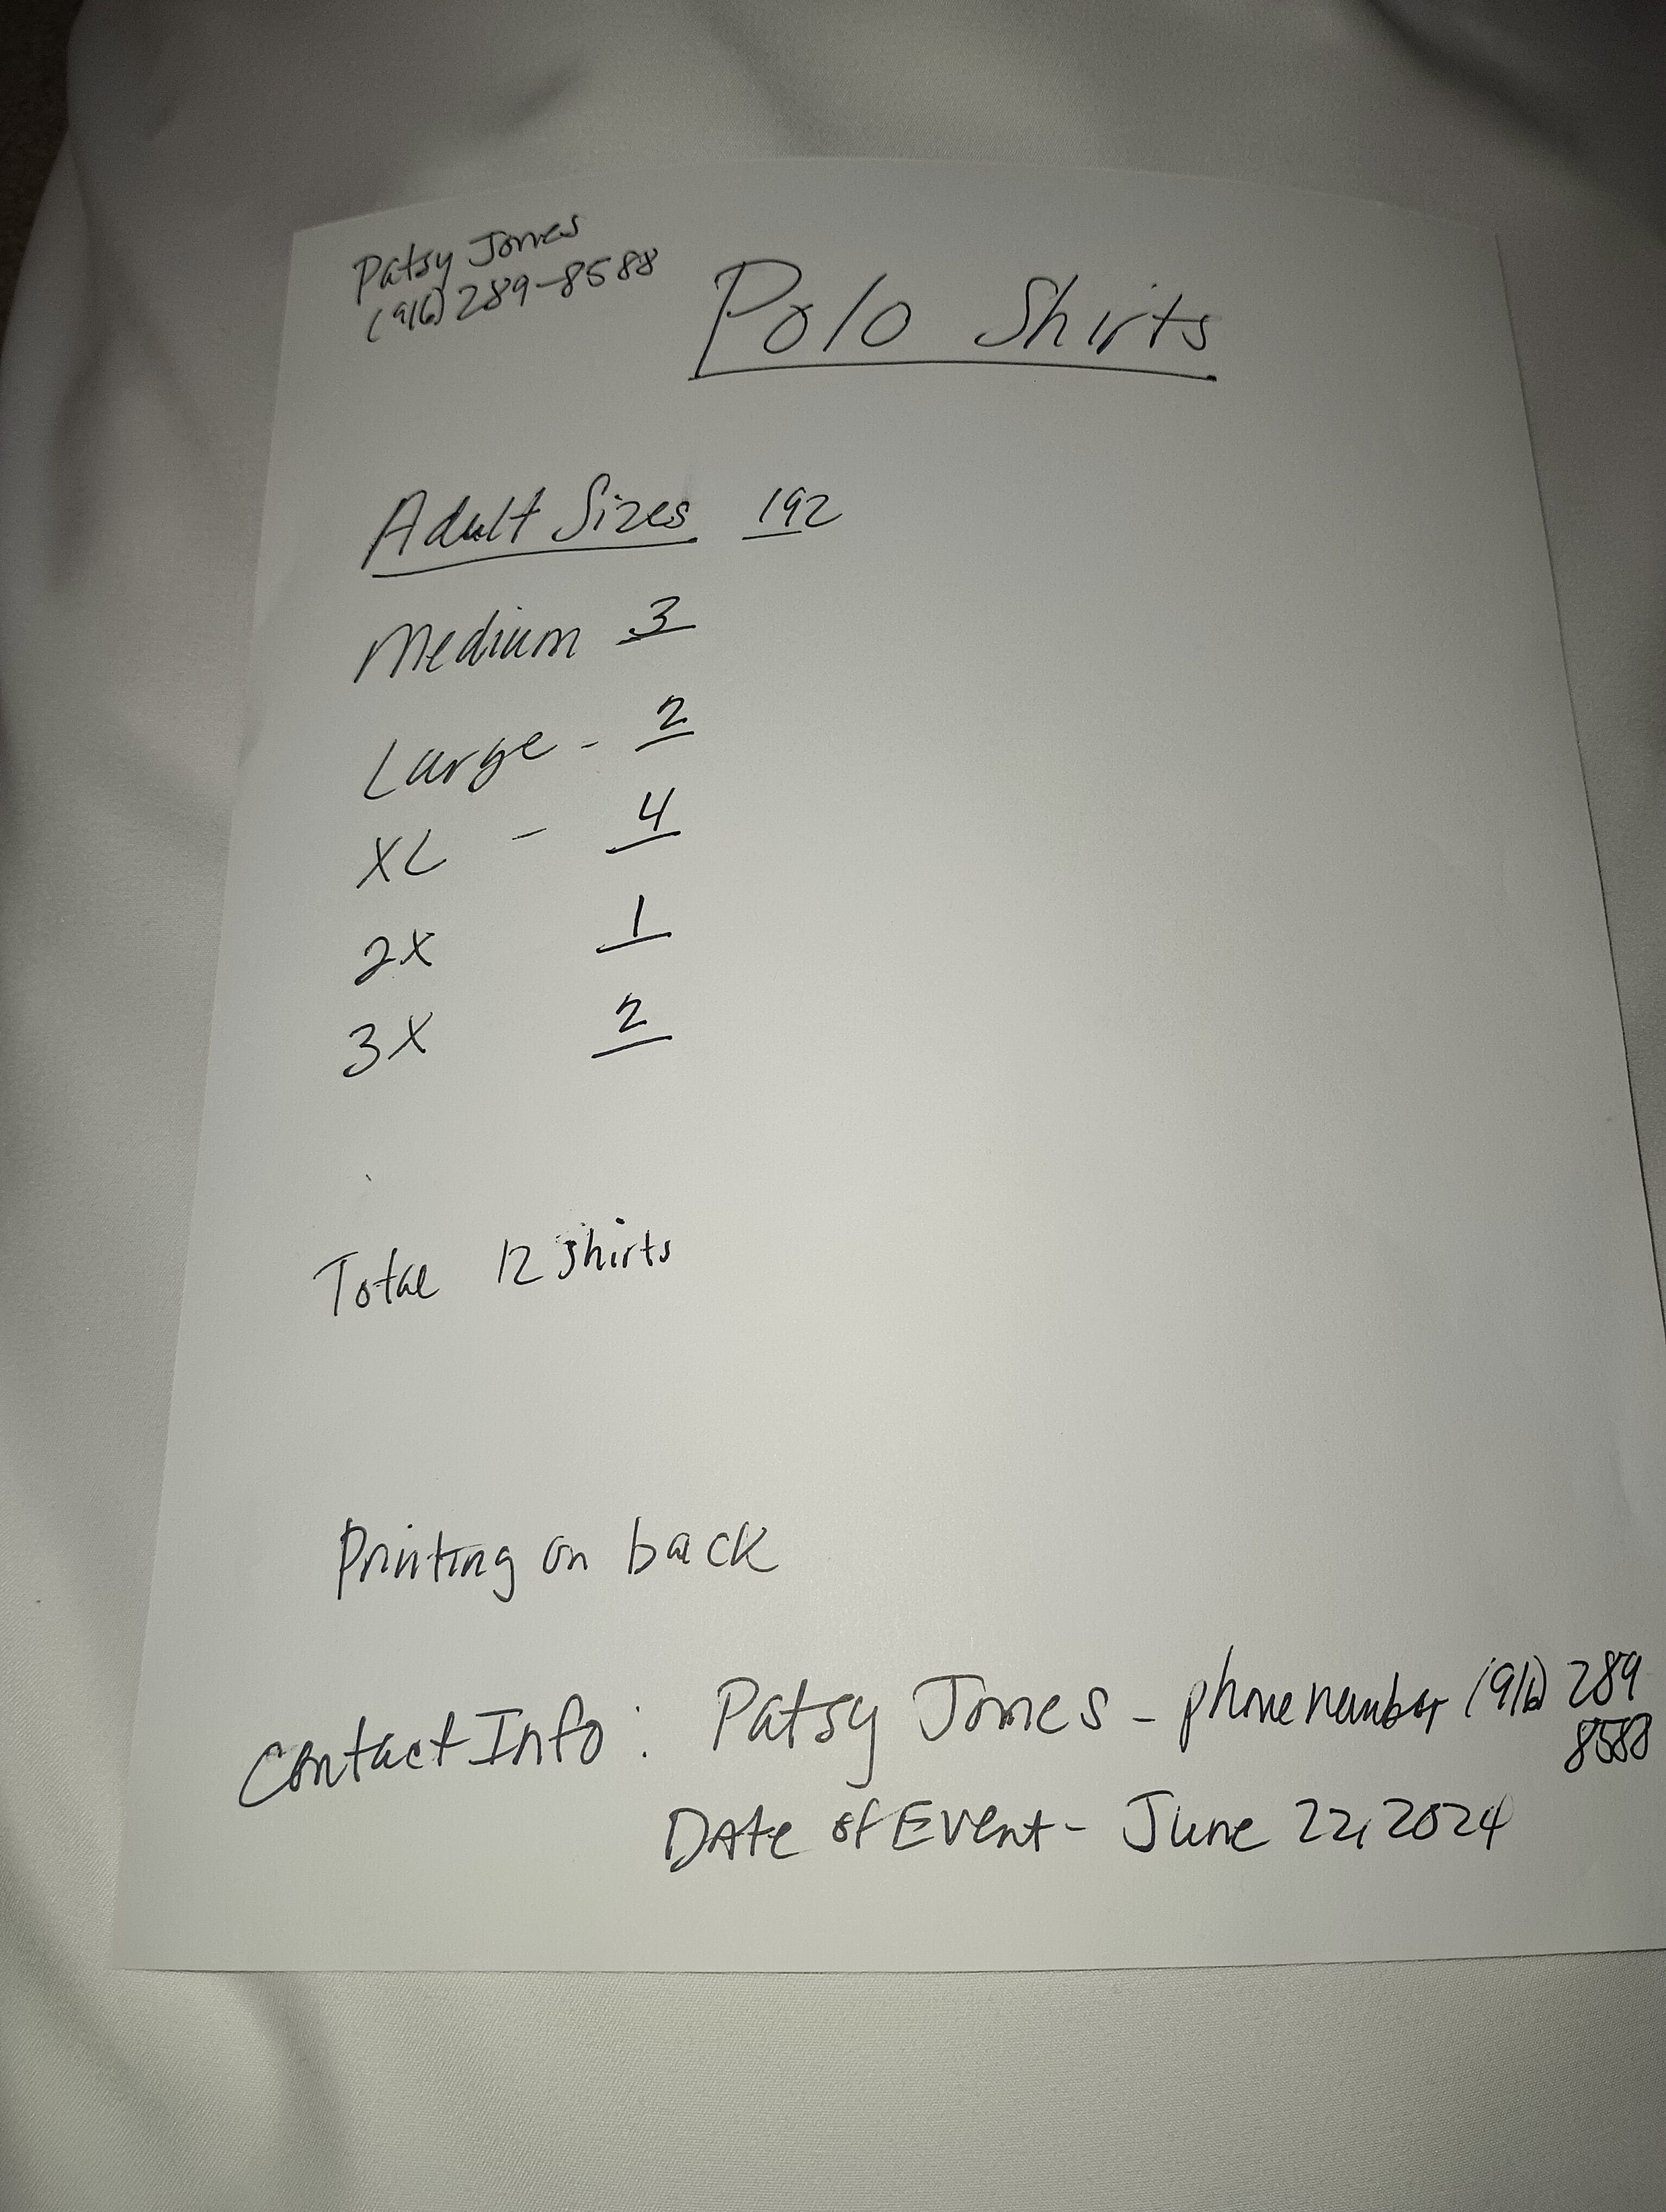 Patsy Jones
(916) 289-8588
Polo Shirts
Adult Sizes 192
Medium 3
Large - 2
XL - 4
2X 1
3X 2
Total 12 shirts
Printing on back
Contact Info: Patsy Jones - phone number (916) 289
8588
Date of Event - June 22, 2024